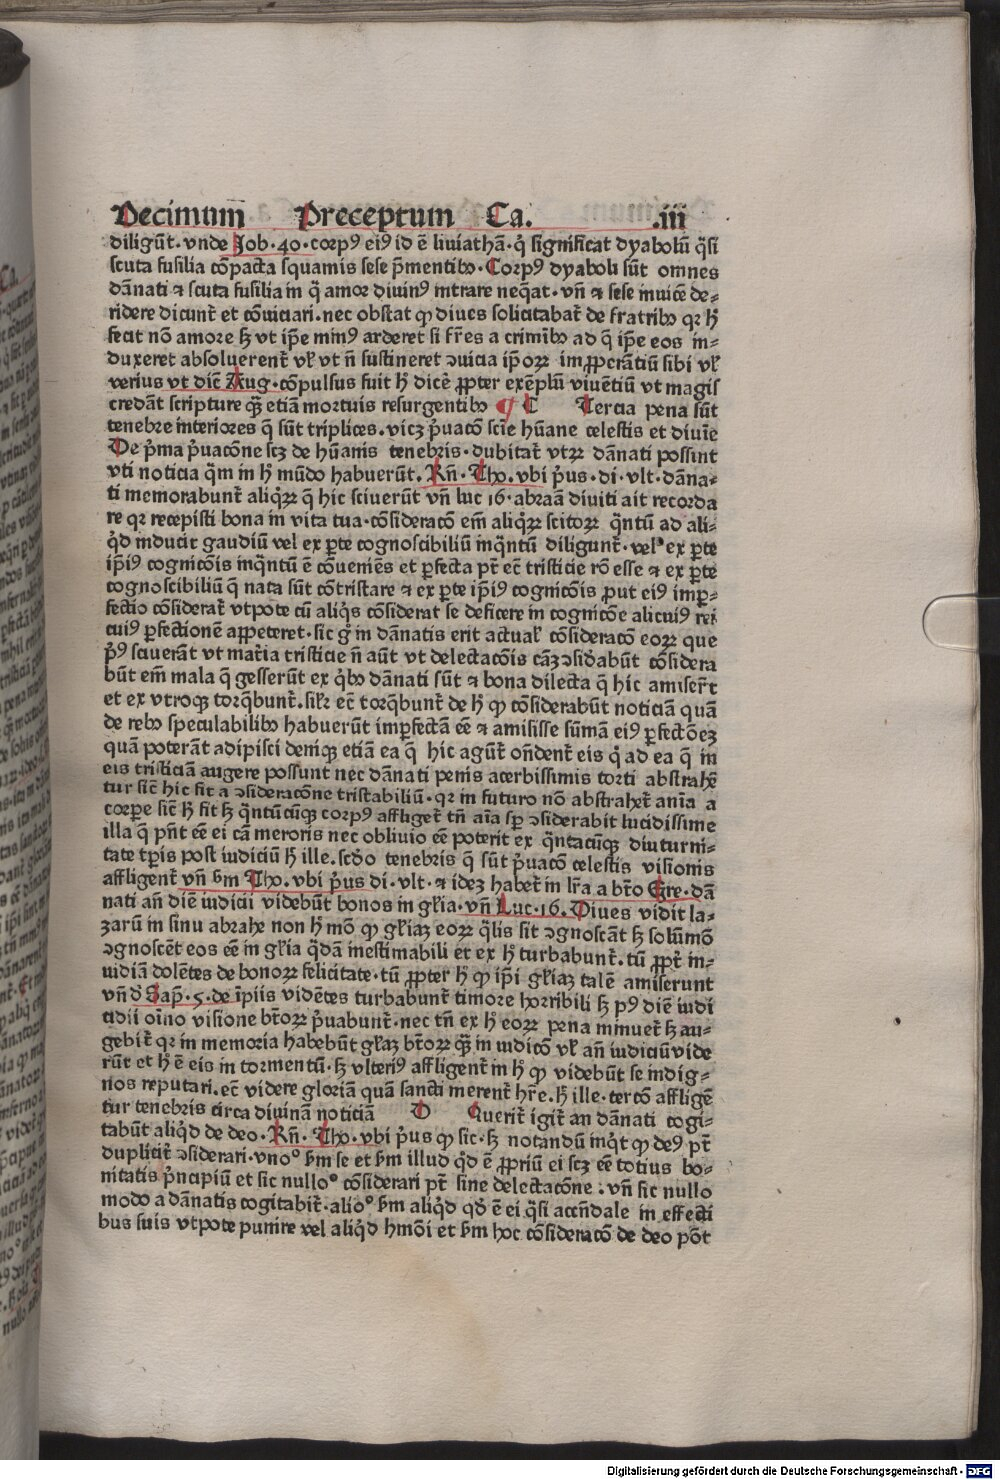 Decimum̅ Preceptum Ca. .iii
diligu̅t·vnde Job·40·corpꝰ eiꝰ id e̅ liuiatha̅·q̇ significat dyabolu̅ q̇si
scuta fusilia co̅pacta squamis sese p̅mentibꝰ·Corpꝰ dyaboli su̅t omnes
da̅nati ⁊ scuta fusilia in q̄ amor diuinꝰ intrare neq̄at·vn̅ ⁊ sese inuice̅ de⸗
ridere dicunt᷑ et co̅uiciari·nec obstat ꝙ diues solicitabat᷑ de fratribꝰ qꝛ h̅
fecit no̅ amore ꝫ vt ip̅e minꝰ arderet si fr̅es a crimi̅bꝰ ad q̄ ip̅e eos in⸗
duxeret absoluerent᷑ vl̕ vt n̅ sustineret ɔuicia ip̅oꝝ imꝓpera̅tiu̅ sibi vl̕
verius vt dic̅ Aug·co̅pulsus fuit h̅ dice̅ ꝓpter exe̅plu̅ viue̅tiu̅ vt magis
creda̅t scripture qꝫ̅ etia̅ mortuis resurgentibꝰ ¶ C Tercia pena su̅t
tenebre interiores q̄ su̅t triplices·vicꝫ p̓uaco̅ scie̅ hu̅ane celestis et diui̅e
De p̓ma p̓uaco̅e scꝫ de hu̅anis tenebris·dubitat᷑ vtꝝ da̅nati possint
vti noticia q̄m in h̅ mu̅do habueru̅t·Rn̅·Tho·vbi p̓us·di·vlt·da̅na⸗
ti memorabunt᷑ aliq̄ꝝ q̄ hic sciueru̅t vn̅ luc 16·abraa̅ diuiti ait recorda
re qꝛ recepisti bona in vita tua·co̅sideraco̅ em̅ aliq̄ꝝ scitoꝝ q̄ntu̅ ad ali⸗
q̇d inducit gaudiu̅ vel ex ꝑte cognoscibiliu̅ inq̄ntu̅ diligunt᷑·vel ex ꝑte
ip̅iꝰ cognico̅is inq̄ntu̅ e̅ co̅uenie̅s et ꝑfecta pt̅ ec̅ tristicie ro̅ esse ⁊ ex ꝑte
cognoscibiliu̅ q̄ nata su̅t co̅tristare ⁊ ex ꝑte ip̅iꝰ cognico̅is ꝓut eiꝰ imꝑ⸗
fectio co̅siderat᷑ vtpote cu̅ aliq̇s co̅siderat se deficere in cognico̅e alicuiꝰ rei
cuiꝰ ꝑfectione̅ appeteret·sic g̊ in da̅natis erit actual̕ co̅sideraco̅ eoꝝ que
p̓ꝰ sciuera̅t vt mat̕ia tristicie n̅ au̅t vt delectaco̅is ca̅ꝫ ɔsid̓abu̅t co̅sidera
bu̅t em̅ mala q̄ gesseru̅t ex q̇bꝰ da̅nati su̅t ⁊ bona dilecta q̄ hic amiser̅t
et ex vtroqꝫ torq̄bunt᷑·sil̕r ec̅ torq̄bunt᷑ de h̅ ꝙ co̅siderabu̅t noticia̅ qua̅
de rebꝰ speculabilibꝰ habueru̅t imꝑfecta̅ ee̅ ⁊ amisisse su̅ma̅ eiꝰ ꝑfecto̅eꝫ
qua̅ potera̅t adipisci deniqꝫ etia̅ ea q̄ hic agu̅t᷑ on̅dent᷑ eis q̇ ad ea q̄ in
eis tristicia̅ augere possunt nec da̅nati penis acerbissimis torti abstrahe̅
tur sic̅ hic fit a ɔsideraco̅ne tristabiliu̅·qꝛ in futuro no̅ abstrahet᷑ ani̅a a
corpe sic̅ h̅ fit ꝫ q̄ntu̅cu̅qꝫ corpꝰ affliget᷑ tn̅ ai̅a sꝑ ɔsiderabit lucidissime
illa q̄ pn̅t ee̅ ei ca̅ meroris nec obliuio ee̅ poterit ex q̄ntacu̅qꝫ diuturni⸗
tate tp̅is post iudiciu̅ h̅ ille·scd̓o tenebris q̄ su̅t p̓uaco̅ celestis visionis
affligent᷑ vn̅ ẜm Tho·vbi p̓us di·vlt·⁊ idez habet᷑ in lr̅a a bt̅o Gre·da̅
nati an̅ die̅ iudicii videbu̅t bonos in gl̕ia·vn̅ Luc·16·Diues vidit la⸗
zaru̅ in sinu abrahe non h̅ mo̅ ꝙ gl̕iaꝫ eoꝝ q̄lis sit ɔgnosca̅t ꝫ solu̅mo̅
ɔgnosce̅t eos ee̅ in gl̕ia q̄da̅ inestimabili et ex h̅ turbabunt᷑·tu̅ ꝓpt᷑ in⸗
uidia̅ dole̅tes de bonoꝝ felicitate·tu̅ ꝓpter h̅ ꝙ ip̅i gl̕iaꝫ tale̅ amiserunt
vn̅ d̓ Sap̅·5·de i̅piis vide̅tes turbabunt᷑ timore horribili ꝫ pꝰ die̅ iudi
cidii oi̅no visione bt̅oꝝ p̓uabunt᷑·nec tn̅ ex h̅ eoꝝ pena minuet᷑ ꝫ au⸗
gebit᷑ qꝛ in memoria habebu̅t gl̕aꝫ bt̅oꝝ qꝫ̅ in iudico̅ vl̕ an̅ iudiciu̅ vide
ru̅t et h̅ e̅ eis in tormentu̅·ꝫ vlteriꝰ affligent᷑ in h̅ ꝙ videbu̅t se indig⸗
nos reputari·ec̅ videre gloria̅ qua̅ sancti merent᷑ hr̅e·h̅ ille·terco̅ afflige̅
tur tenebris circa diuina̅ noticia̅ D Querit᷑ igit᷑ an da̅nati cogi⸗
tabu̅t aliq̇d de deo·Rn̅·Tho·vbi p̓us ꝙ sic·ꝫ notandu̅ inq̇t ꝙ deꝰ pt̅
duplicit᷑ ɔsiderari·vnoº ẜm se et ẜm illud q̇d e̅ ꝓpriu̅ ei scꝫ ee̅ totius bo⸗
nitatis p̓ncipiu̅ et sic nulloº co̅siderari pt̅ sine delectaco̅ne:vn̅ sic nullo
modo a da̅natis cogitabit᷑·alioº ẜm aliq̇d qd̓ e̅ ei q̄si accn̅dale in effecti
bus suis vtpote punire vel aliq̇d hmo̅i et ẜm hoc co̅sideraco̅ de deo po̅t
Digitalisierung gefördert durch die Deutsche Forschungsgemeinschaft · DFG